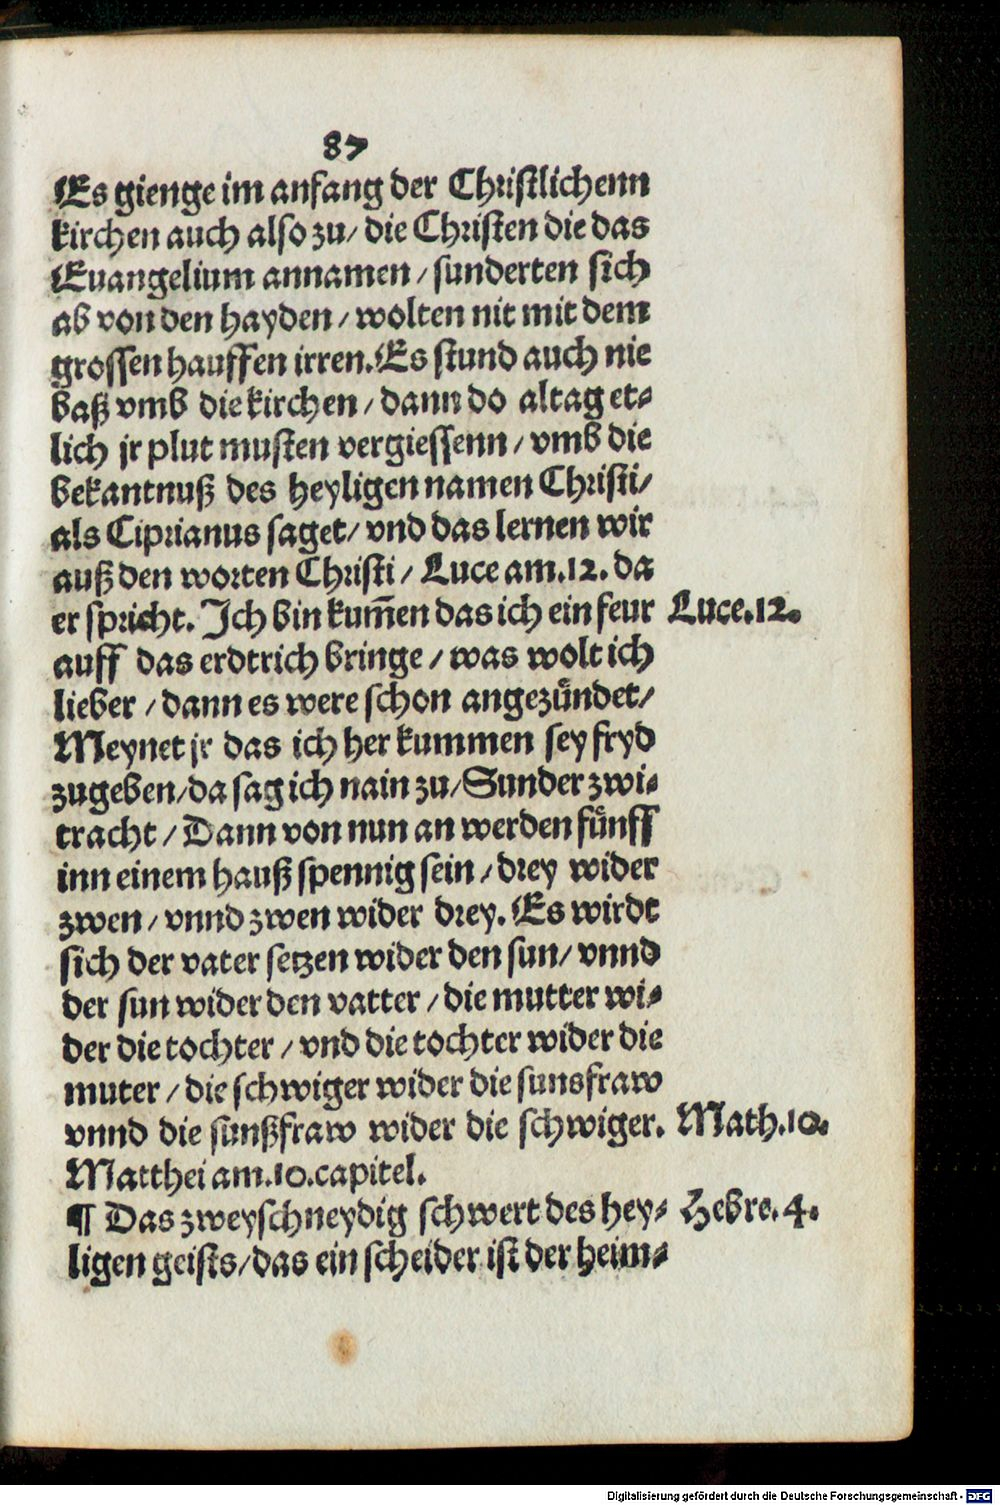 87
Es gienge im anfang der Christlichenn
kirchen auch also zu/ die Christen die das
Euangelium annamen / sunderten sich
ab von den hayden / wolten nit mit dem
grossen hauffen irren. Es stund auch nie
baß vmb die kirchen / dann do altag et⸗
lich jr plut musten vergiessenn / vmb die
bekantnuß des heyligen namen Christi/
als Ciprianus saget/ vnd das lernen wir
auß den worten Christi / Luce am.12. da
er spricht. Ich bin kum̃en das ich ein feur Luce.12.
auff das erdtrich bringe / was wolt ich
lieber / dann es were schon angezündet/
Meynet jr das ich her kummen sey fryd
zugeben/da sag ich nain zu/Sunder zwi⸗
tracht / Dann von nun an werden fünff
inn einem hauß spennig sein / drey wider
zwen / vnnd zwen wider drey. Es wirdt
sich der vater setzen wider den sun/ vnnd
der sun wider den vatter / die mutter wi⸗
der die tochter / vnd die tochter wider die
muter / die schwiger wider die sunsfraw
vnnd die sunßfraw wider die schwiger. Math.10.
Matthei am.10.capitel.
¶ Das zweyschneydig schwert des hey⸗ Hebre.4.
ligen geists/das ein scheider ist der heim⸗
Digitalisierung gefördert durch die Deutsche Forschungsgemeinschaft - DFG